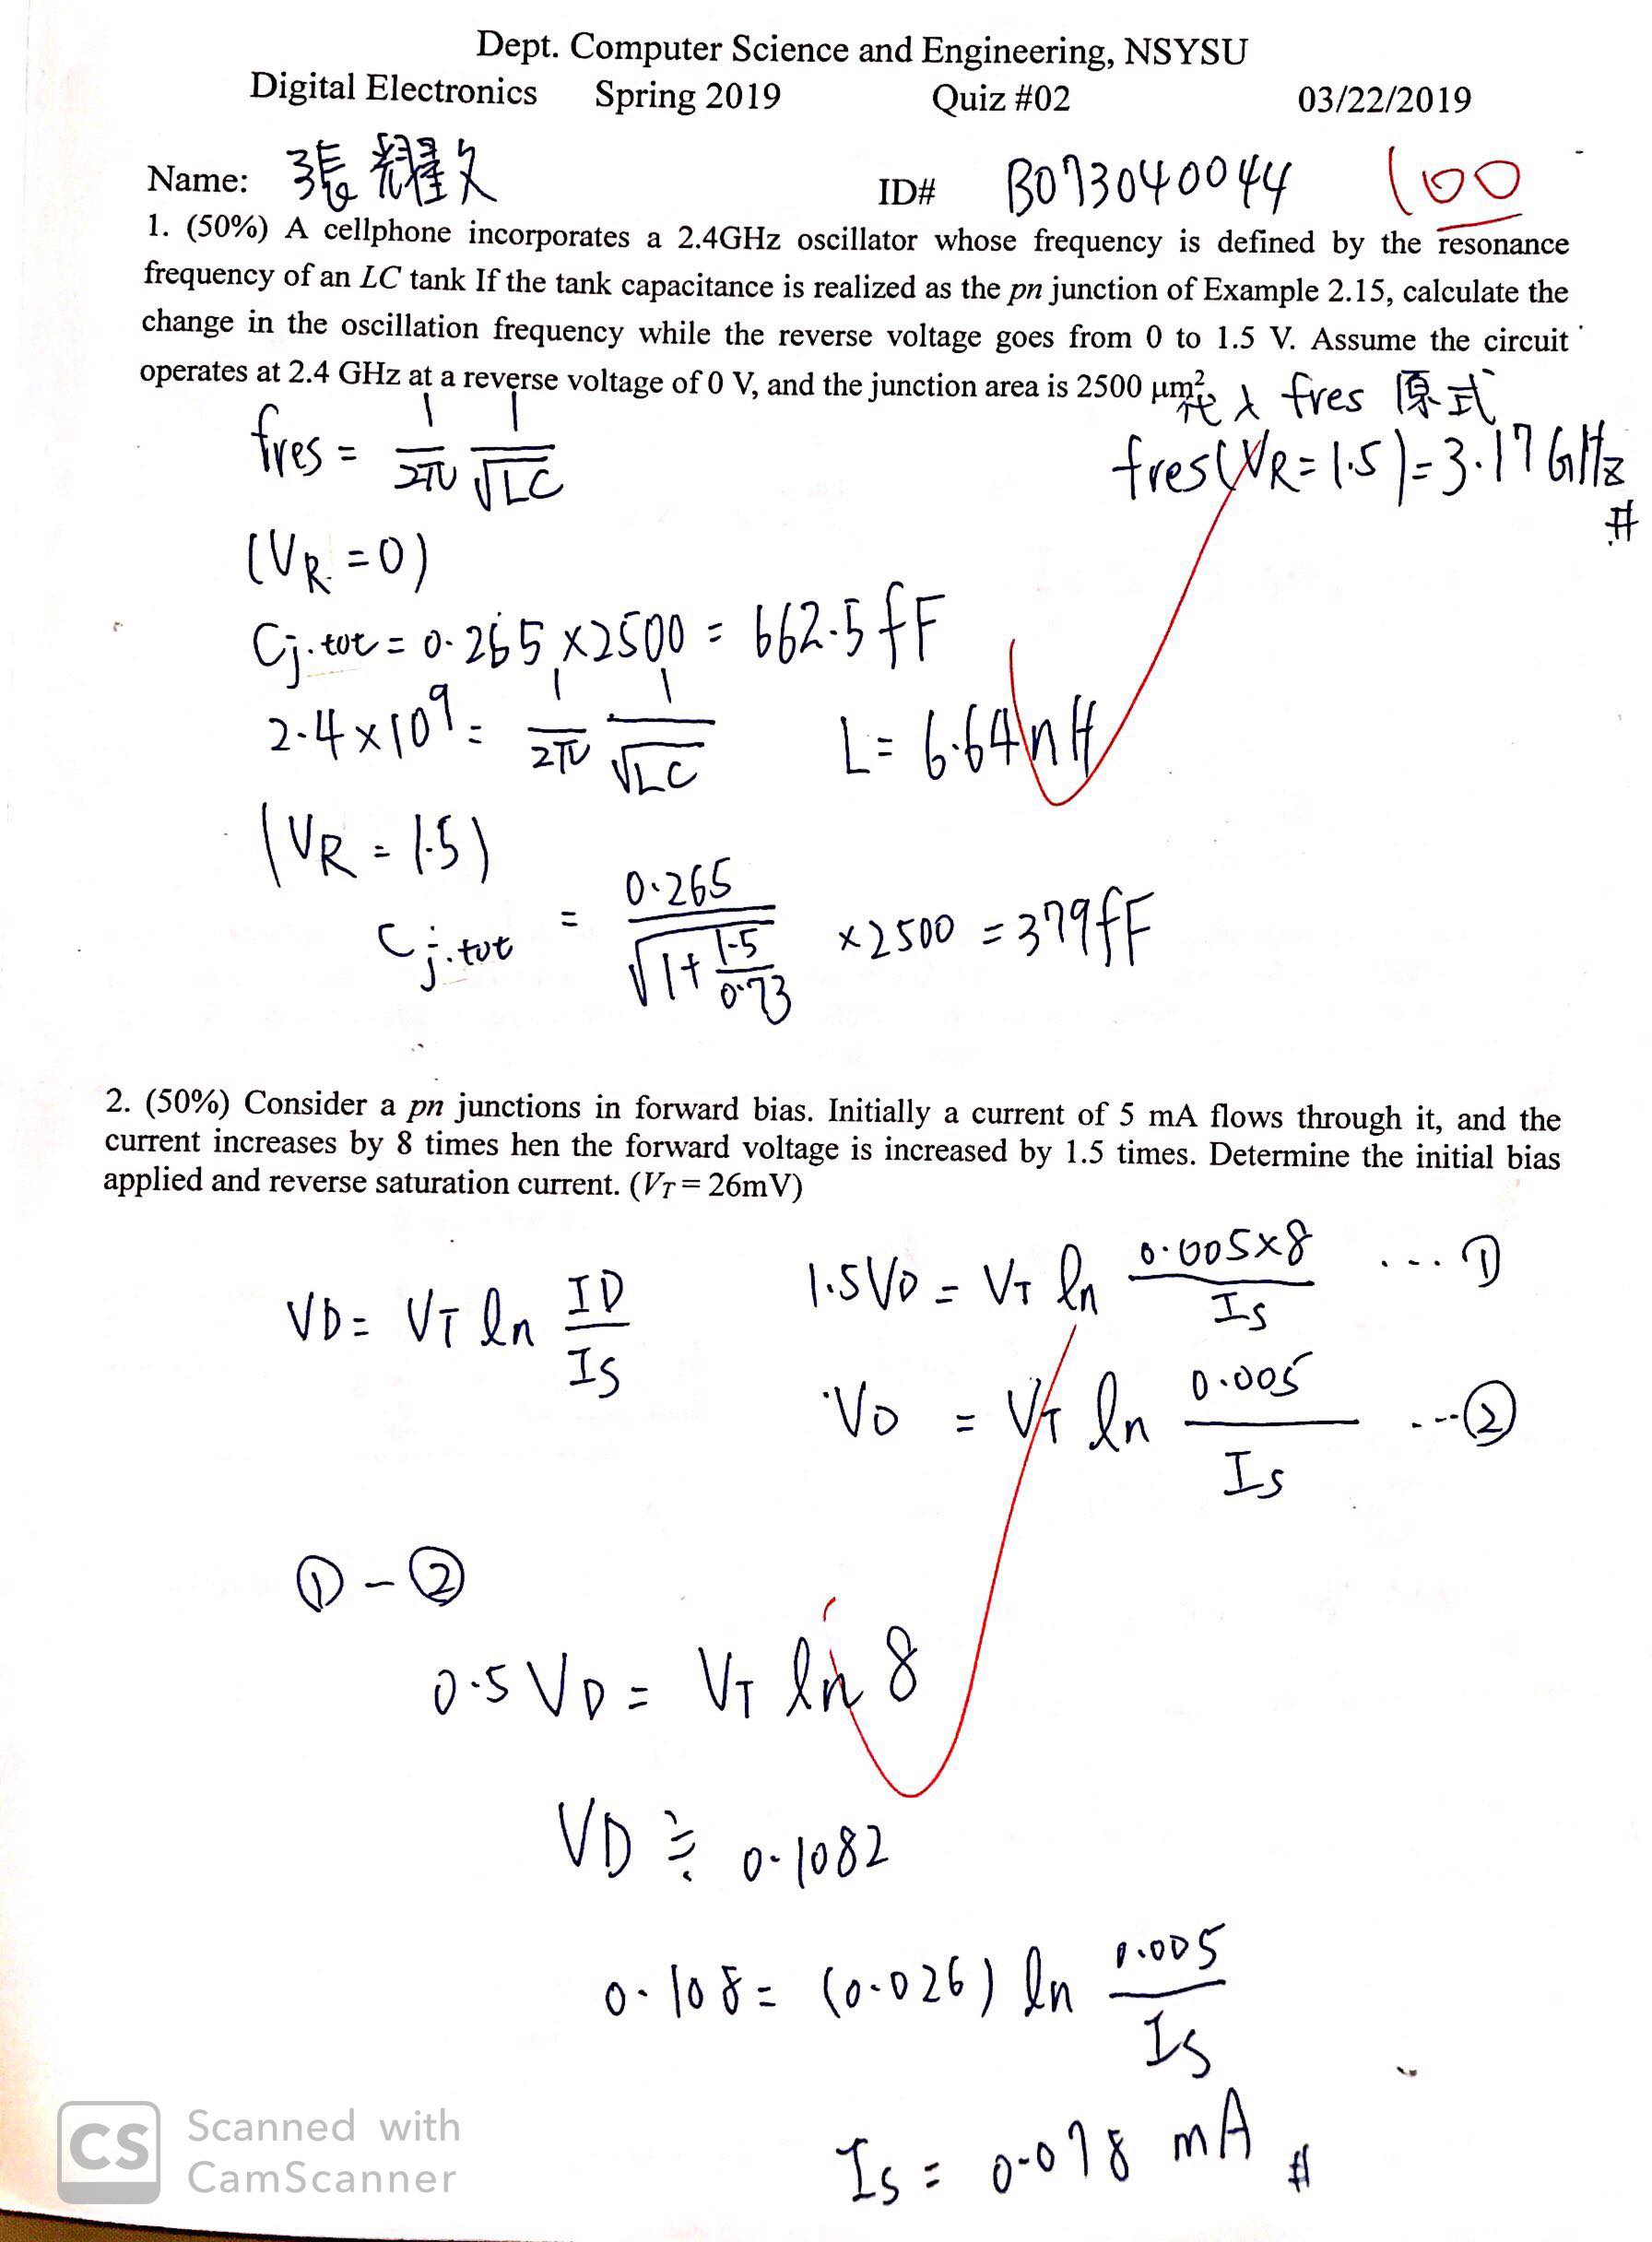 Dept. Computer Science and Engineering, NSYSU
Digital Electronics Spring 2019 Quiz #02 03/22/2019
Name: 張耀文 ID# B073040044 100
1. (50%) A cellphone incorporates a 2.4GHz oscillator whose frequency is defined by the resonance
frequency of an LC tank If the tank capacitance is realized as the pn junction of Example 2.15, calculate the
change in the oscillation frequency while the reverse voltage goes from 0 to 1.5 V. Assume the circuit
operates at 2.4 GHz at a reverse voltage of 0 V, and the junction area is 2500 μm².
代入 fres 原式
fres = 1/2π 1/√LC
fres(VR=1.5)=3.17GHz #
(VR=0)
Cj.tot = 0.265×2500 = 662.5fF
2.4×10⁹ = 1/2π 1/√LC L = 6.64nH
(VR = 1.5)
Cj.tot = 0.265/√(1+1.5/0.73) ×2500 = 379fF
2. (50%) Consider a pn junctions in forward bias. Initially a current of 5 mA flows through it, and the
current increases by 8 times hen the forward voltage is increased by 1.5 times. Determine the initial bias
applied and reverse saturation current. (VT = 26mV)
VD = VT ln ID/IS
1.5VD = VT ln 0.005×8/IS ...①
VD = VT ln 0.005/IS ...②
①-②
0.5VD = VT ln 8
VD ≒ 0.1082
0.108 = (0.026) ln 0.005/IS
IS = 0.078 mA #
CS Scanned with
CamScanner